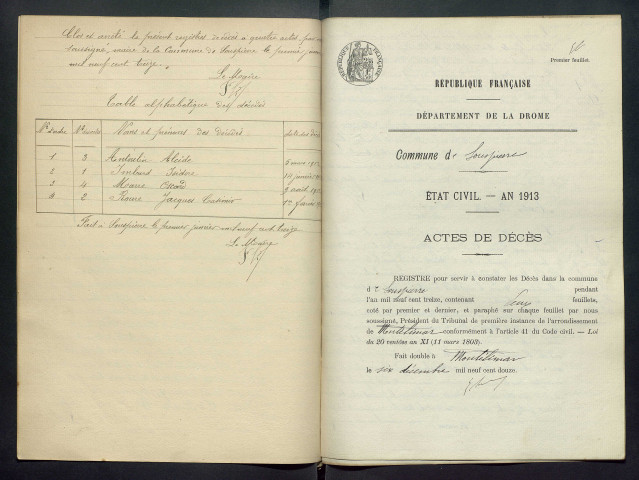 Clos et arrêté le présent registre de décès à quatre actes, par nous
soussigné, maire de la Commune de Souspierre le premier janvier
mil neuf cent treize.
Le Maire
Table alphabétique des décédés
Nos d'ordre Nos des actes Noms et prénoms des décédés
1 3 Alcide
2 1 Isidore 14 janvier
3 4 août
4 2 Roure Jacques 12 février
Fait à Souspierre le premier janvier mil neuf cent treize
Le Maire
Premier feuillet.
RÉPUBLIQUE FRANÇAISE
RÉPUBLIQUE FRANÇAISE
DÉPARTEMENT DE LA DROME
Commune de Souspierre
ETAT CIVIL. — AN 1913
ACTES DE DÉCÈS
REGISTRE pour servir à constater les Décès dans la commune
de Souspierre pendant
l'an mil neuf cent treize, contenant feuillets,
coté par premier et dernier, et paraphé sur chaque feuillet par nous
soussigné, Président du Tribunal de première instance de l'arrondissement
de Montélimar conformément à l'article 41 du Code civil. — Loi
du 20 ventôse an XI (11 mars 1803).
Fait double à Montélimar
le six décembre mil neuf cent douze.